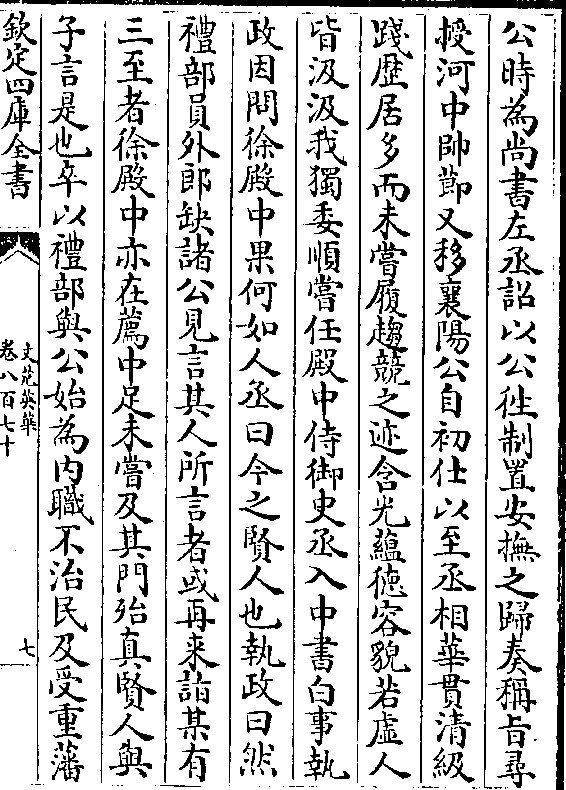 公時為尚書左丞詔以公徃制置安撫之歸奏稱旨尋
授河中帥節又移襄陽公自初仕以至丞相華貫清級
踐歴居多而未嘗履趨競之迹含光蘊徳容貌若虛人
皆汲汲我獨委順嘗任殿中侍御史丞入中書白事執
政因問徐殿中果何如人丞曰今之賢人也執政曰然
禮部員外郎缺諸公見言其人所言者或再来詣某有
三至者徐殿中亦在薦中足未嘗及其門殆真賢人與
子言是也卒以禮部與公始為内職不治民及受重藩
欽定四庫全書
文苑英華
卷八百七十
七